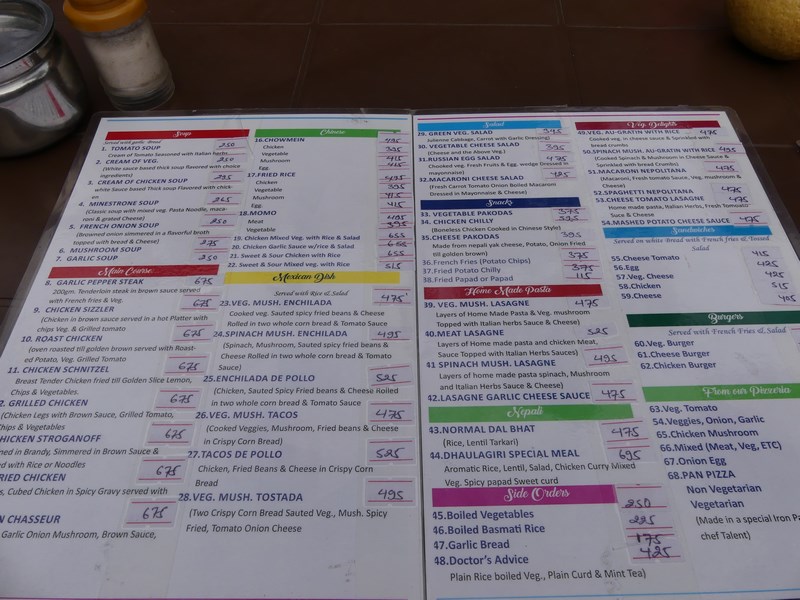 Soup
Served with garlic Bread
1. TOMATO SOUP 250
Cream of Tomato Seasoned with Italian herbs
2. CREAM OF VEG. 250
(White sauce based thick soup flavored with choice
ingredients)
3. CREAM OF CHICKEN SOUP 295
white Sauce based Thick soup Flavored with chick-
en
4. MINESTRONE SOUP 265
(Classic soup with mixed veg. Pasta Noodle, maca-
roni & grated Cheese)
5. FRENCH ONION SOUP 250
(Browned onion simmered in a flavorful broth
topped with bread & Cheese)
6. MUSHROOM SOUP 275
7. GARLIC SOUP 250
Main Course
8. GARLIC PEPPER STEAK 675
200gm. Tenderloin steak in brown sauce served
with French fries & Veg.
9. CHICKEN SIZZLER 675
(Chicken in brown sauce served in a hot Platter with
chips Veg. & Grilled tomato
10. ROAST CHICKEN 675
(oven roasted till golden brown served with Roast-
ed Potato, Veg. Grilled Tomato
11. CHICKEN SCHNITZEL 675
Breast Tender Chicken fried till Golden Slice Lemon,
Chips & Vegetables.
2. GRILLED CHICKEN 675
(Chicken Legs with Brown Sauce, Grilled Tomato,
Chips & Vegetables
HICKEN STROGANOFF 675
ned in Brandy, Simmered in Brown Sauce &
d with Rice or Noodles
RIED CHICKEN 675
s, Cubed Chicken in Spicy Gravy served with
N CHASSEUR 675
Garlic Onion Mushroom, Brown Sauce,
Chinese
16.CHOWMEIN
Chicken 495
Vegetable 395
Mushroom 415
Egg. 415
17.FRIED RICE
Chicken 495
Vegetable 395
Mushroom 415
Egg 415
18.MOMO
Chicken 495
Veg 395
19. Chicken Mixed Veg. with Rice & Salad 655
20. Chicken Garlic Sauce w/rice & Salad 655
21. Sweet & Sour Chicken with Rice 655
22. Sweet & Sour Mixed veg. with Rice 515
Mexican Dish
Served with Rice & Salad
23.VEG. MUSH. ENCHILADA 475
Cooked veg, Sauted spicy fried beans & Cheese
Rolled in two whole corn bread & Tomato Sauce
24.SPINACH MUSH. ENCHILADA 495
(Spinach, Mushroom, Sauted spicy fried beans &
Cheese Rolled in two whole corn bread & Tomato
Sauce)
25.ENCHILADA DE POLLO 525
(Chicken, Sauted Spicy Fried beans & Cheese Rolled
in two whole corn bread & Tomato Sauce
26.VEG. MUSH. TACOS 475
(Cooked Veggies, Mushroom, Fried beans & Cheese
in Crispy Corn Bread)
27.TACOS DE POLLO 525
Chicken, Fried Beans & Cheese in Crispy Corn
Bread)
28.VEG. MUSH. TOSTADA 495
(Two Crispy Corn Bread Sauted Veg., Mush. Spicy
Fried, Tomato Onion Cheese
Salad
29. GREEN VEG. SALAD 345
Julienne Cabbage, Carrot with Garlic Dressing)
30. VEGETABLE CHEESE SALAD 395
(Cheese and the Above Veg.)
31.RUSSIAN EGG SALAD 475
Chooked veg. Fresh Fruits & Egg. wedge Dressed in
mayonnaise)
32.MACARONI CHEESE SALAD 425
(Fresh Carrot Tomato Onion Boiled Macaroni
Dressed in Mayonnaise & Cheese)
Snack
33. VEGETABLE PAKODAS 375
34. CHICKEN CHILLY 595
(Boneless Chicken Cooked in Chinese Style)
35.CHEESE PAKODAS 395
Made from nepali yak cheese, Potato, Onion Fried
till golden brown)
36.French Fries (Potato Chips) 375
37.Fried Potato Chilly 375
38.Fried Papad or Papad 115
Home Made Pasta
39. VEG. MUSH. LASAGNE 475
Layers of Home Made Pasta & Veg. mushroom
Topped with Italian herbs Sauce & Cheese)
40.MEAT LASAGNE 525
Layers of Home made pasta and chicken Meat,
Sauce Topped with Italian Herbs Sauces)
41 SPINACH MUSH. LASAGNE 495
Layers of home made pasta spinach, Mushroom
and Italian Herbs Sauce & Cheese)
42.LASAGNE GARLIC CHEESE SAUCE 475
Nepali
43.NORMAL DAL BHAT 475
(Rice, Lentil Tarkari)
44.DHAULAGIRI SPECIAL MEAL 695
Aromatic Rice, Lentil, Salad, Chicken Curry Mixed
Veg. Spicy papad Sweet curd
Side Orders
45.Boiled Vegetables 250
46.Boiled Basmati Rice 225
47.Garlic Bread 175
48.Doctor's Advice 425
Plain Rice boiled Veg., Plain Curd & Mint Tea)
Veg. Delights
49.VEG. AU-GRATIN WITH RICE 475
Cooked veg, in cheese sauce & Sprinkled with
bread crumbs
50.SPINACH MUSH. AU-GRATIN WITH RICE 495
(Cooked Spinach & Mushroom in Cheese Sauce &
Sprinkled with bread Crumbs)
51.MACARONI NEPOLITANA 475
(Macaroni, Fresh tomato Sauce, Veg, mushroom &
Cheese)
52.SPAGHETTI NEPOLITANA 475
53.CHEESE TOMATO LASAGNE 475
Home made pasta, Italian Herbs, Fresh Tomato
Suce & Cheese
54.MASHED POTATO CHEESE SAUCE 475
Sandwiches
Served on white Bread with French fries & Tossed
Salad
55.Cheese Tomato 415
56.Egg 425
57.Veg. Cheese 425
58.Chicken 515
59.Cheese 405
Burgers
Served with French Fries & Salad
60.Veg. Burger
61.Cheese Burger
62.Chicken Burger
From our Pizzeria
63.Veg. Tomato
54.Veggies, Onion, Garlic
65.Chicken Mushroom
66.Mixed (Meat, Veg, ETC)
67.Onion Egg
68.PAN PIZZA
Non Vegetarian
Vegetarian
(Made in a special Iron Pa
chef Talent)